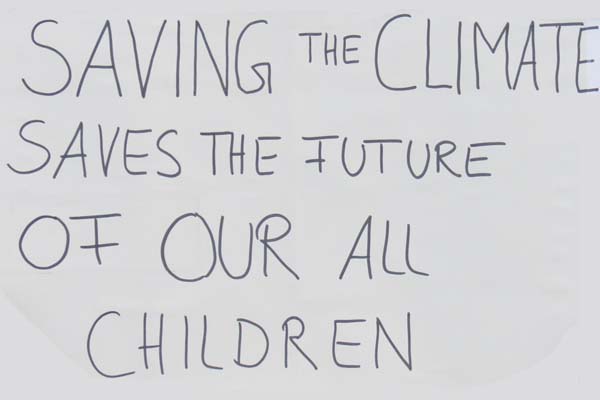 SAVING THE CLIMATE
SAVES THE FUTURE
OF OUR ALL
CHILDREN